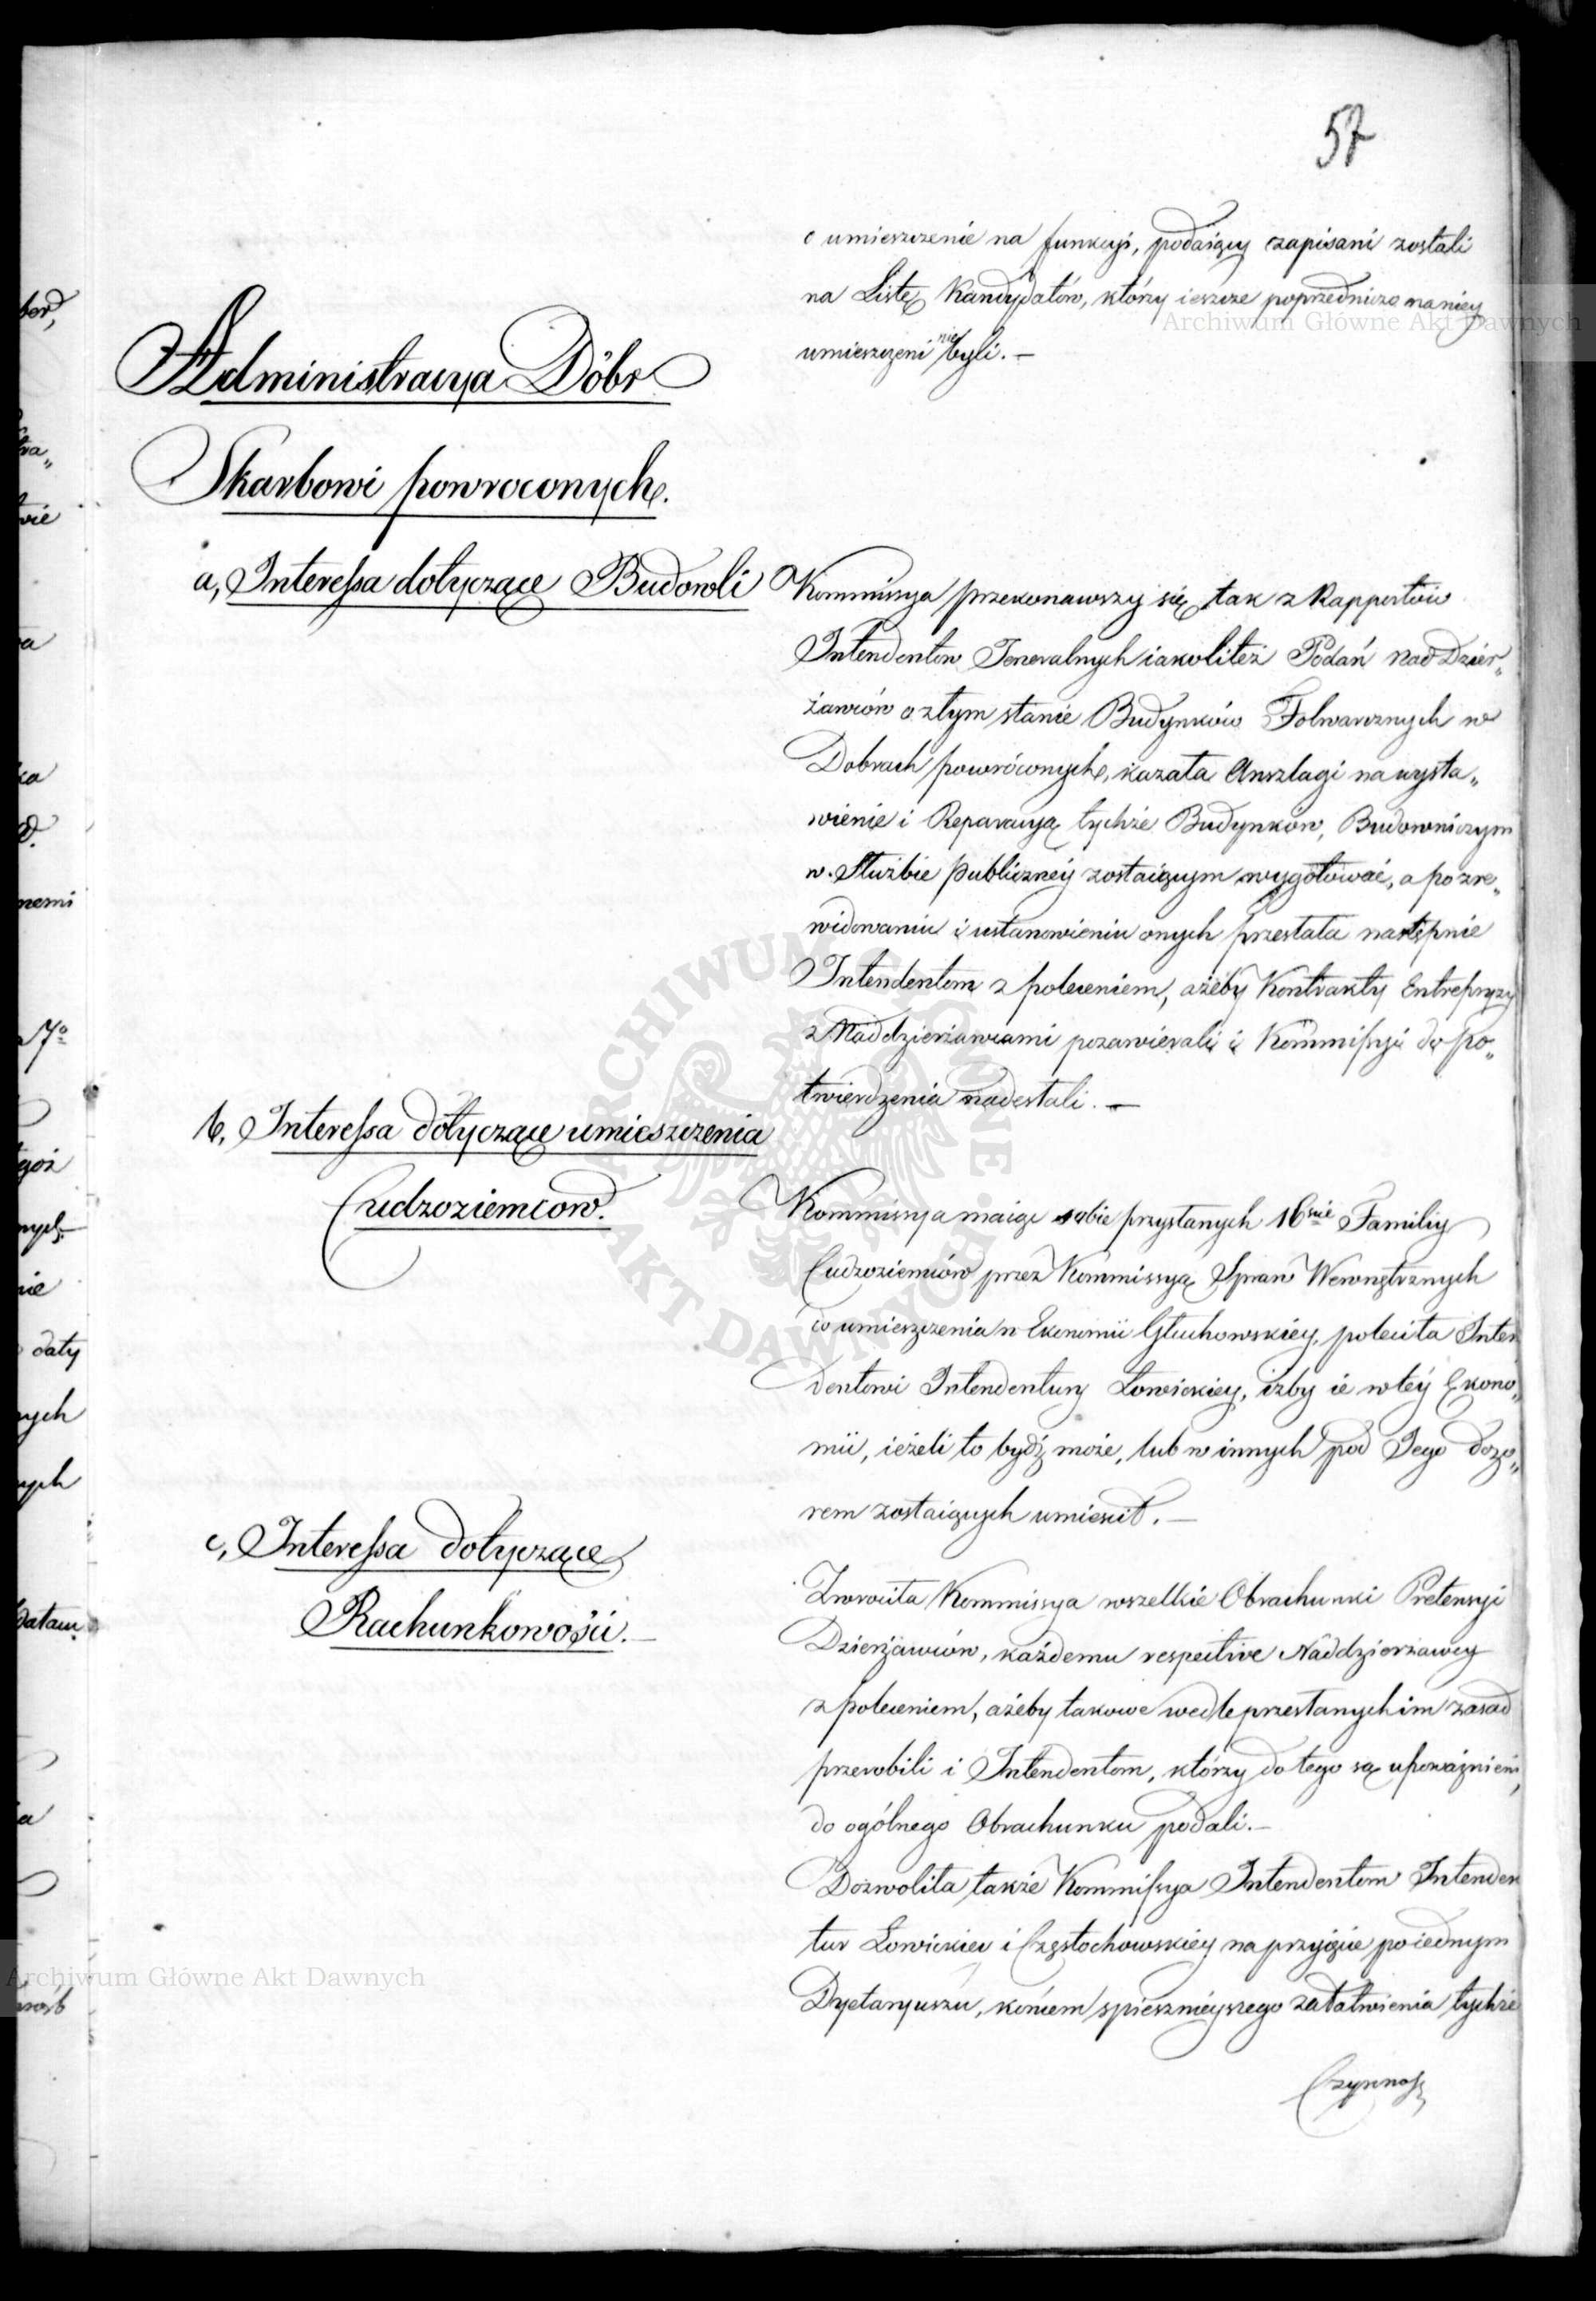 57
o umieszczenie na funkcyi, podaiący zapisani zostali
na Listę Kandydatów, którzy ieszcze poprzedniczo na niey
umieszczeni nie byli. —
Administracya Dóbr
Skarbowi powroconych.
a, Interessa dotyczące Budowli
Kommissya przekonawszy się tak z Rapportów
Intendentow Jeneralnych iakoliteż Podań Nad Dzier„
żawców o złym stanie Budynków Folwarcznych w
Dobrach powróconych, kazała Anszlagi na wysta„
wienie i Reparacyą tychże Budynków, Budowniczym
w Służbie publiczney zostaiącym wygotować, a po zre„
widowaniu i ustanowieniu onych przesłała następnie
Intendentom z poleceniem, ażeby Kontrakty Entrepryzy
z Naddzierżawcami pozawierali i Kommissyi do po„
twierdzenia nadesłali. —
b, Interessa dotyczące umieszczenia
Cudzoziemcow.
Kommissya maiąc sobie przysłanych 16ście Familiy
Cudzoziemców przez Kommissyą Spraw Wewnętrznych
do umieszczenia w Ekonomii Głuchowskiey, poleciła Inten
dentowi Intendentury Łowickiey, iżby ie w tey Ekono„
mii, ieżeli to bydź może, lub w innych pod Jego dozo„
rem zostaiących umieścił. —
c, Interessa dotyczące
Rachunkowości. —
Zwrociła Kommissya wszelkie Obrachunki Pretensyi
Dzierżawców, każdemu respective Naddzierżawcy
z poleceniem, ażeby takowe wedle przesłanych im zasad
przerobili i Intendentom, którzy do tego są upoważnieni,
do ogólnego Obrachunku podali. —
Dozwoliła także Kommissya Intendentom Intenden
tur Łowickiey i Częstochowskiey na przyięcie po iednym
Dyetaryuszu, końcem spiesznieyszego załatwienia tychże
Czynnoś
ber,
wie
nemi
nie
daty
nych
Archiwum Główne Akt Dawnych
Archiwum Główne Akt Dawnych
ARCHIWUM GŁÓWNE AKT DAWNYCH